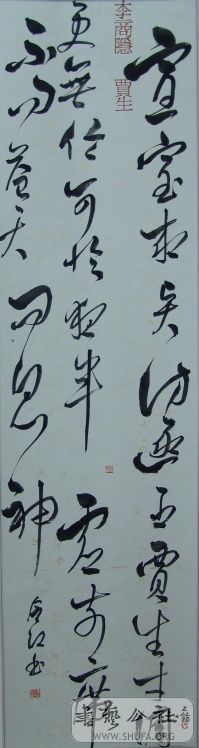 李商隐 賈生
宣室求賢訪逐臣賈生才調
更無倫可憐夜半虛前席
不問蒼生問鬼神
書藝公社
WWW.SHUFA.ORG